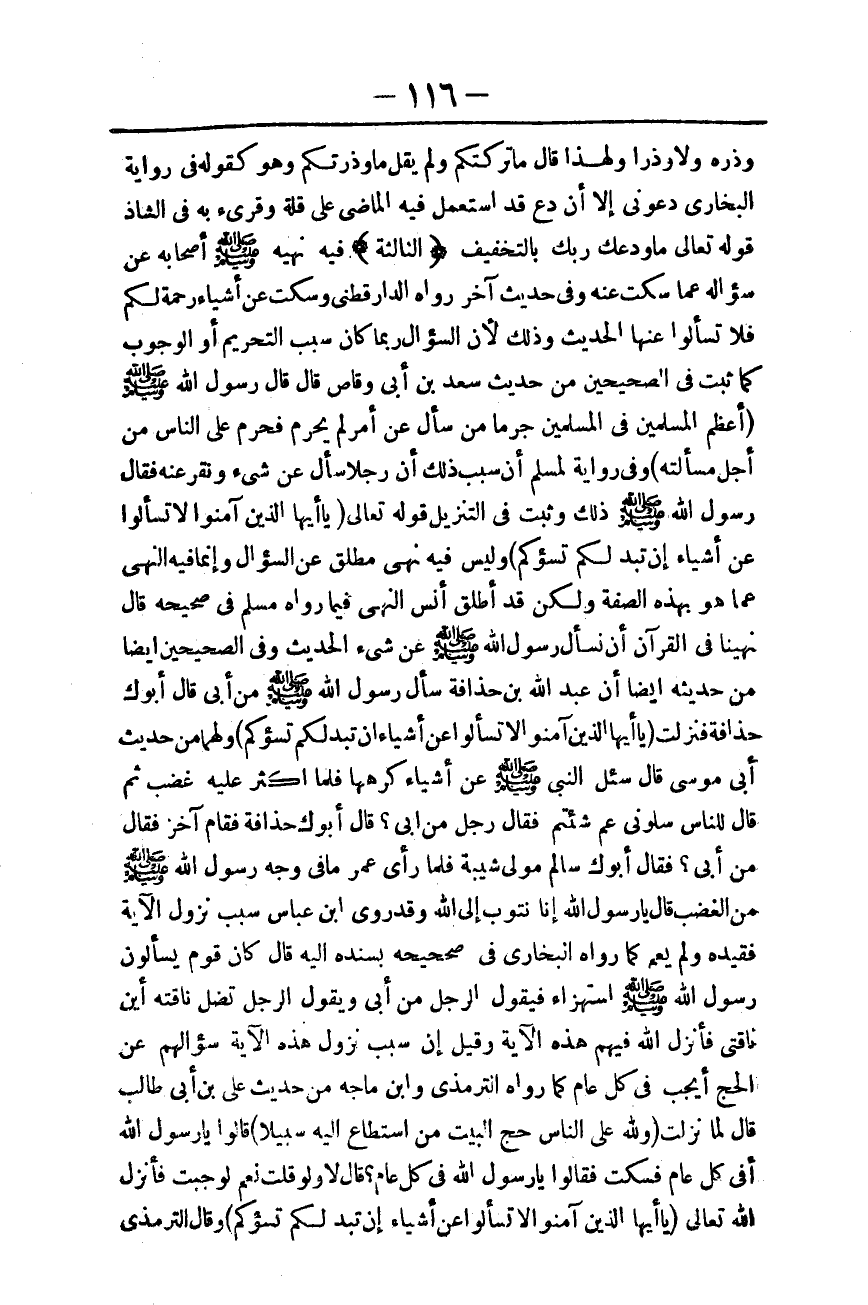 — ١١٦ —
وذره ولاوذرا ولهذا قال ماتركتكم ولم يقل ماوذرتكم وهو كقوله فى رواية
البخارى دعونى إلا أن دع قد استعمل فيه الماضى على قلة وقرىء به فى الشاذ
قوله تعالى ماودعك ربك بالتخفيف ﴿ الثالثة ﴾ فيه نهيه ﷺ أصحابه عن
سؤاله عما سكت عنه وفى حديث آخر رواه الدارقطنى وسكت عن أشياء رحمة لكم
فلا تسألوا عنها الحديث وذلك لأن السؤال ربما كان سبب التحريم أو الوجوب
كما ثبت فى الصحيحين من حديث سعد بن أبى وقاص قال قال رسول الله ﷺ
(أعظم المسلمين فى المسلمين جرما من سأل عن أمر لم يحرم فحرم على الناس من
أجل مسألته) وفى رواية لمسلم أن سبب ذلك أن رجلا سأل عن شىء ونقر عنه فقال
رسول الله ﷺ ذلك وثبت فى التنزيل قوله تعالى (ياأيها الذين آمنوا لاتسألوا
عن أشياء إن تبد لكم تسؤكم) وليس فيه نهى مطلق عن السؤال وإنما فيه النهى
عما هو بهذه الصفة ولكن قد أطلق أنس النهى فيما رواه مسلم فى صحيحه قال
نهينا فى القرآن أن نسأل رسول الله ﷺ عن شىء الحديث وفى الصحيحين ايضا
من حديثه ايضا أن عبد الله بن حذافة سأل رسول الله ﷺ من أبى قال أبوك
حذافة فنزلت (ياأيها الذين آمنوا لاتسألوا عن أشياء ان تبد لكم تسؤكم) ولهما من حديث
أبى موسى قال سئل النبى ﷺ عن أشياء كرهها فلما اكثر عليه غضب ثم
قال للناس سلونى عم شئتم فقال رجل من ابى ؟ قال أبوك حذافة فقام آخر فقال
من أبى ؟ فقال أبوك سالم مولى شيبة فلما رأى عمر مافى وجه رسول الله ﷺ
من الغضب قال يارسول الله إنا نتوب إلى الله وقد روى ابن عباس سبب نزول الآية
فقيده ولم يعم كما رواه البخارى فى صحيحه بسنده اليه قال كان قوم يسألون
رسول الله ﷺ استهزاء فيقول الرجل من أبى ويقول الرجل تضل ناقته أين
ناقتى فأنزل الله فيهم هذه الآية وقيل إن سبب نزول هذه الآية سؤالهم عن
الحج أيجب فى كل عام كما رواه الترمذى وابن ماجه من حديث على بن أبى طالب
قال لما نزلت (ولله على الناس حج البيت من استطاع اليه سبيلا) قالوا يارسول الله
أفى كل عام فسكت فقالوا يارسول الله فى كل عام؟ قال لا ولو قلت نعم لوجبت فأنزل
الله تعالى (ياأيها الذين آمنوا لاتسألوا عن أشياء إن تبد لكم تسؤكم) وقال الترمذى